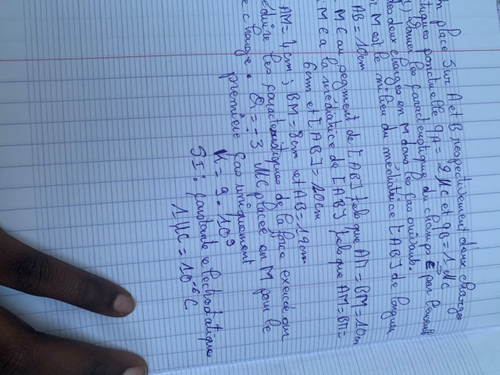 place sur A et B respectivement deux charges
ponctuelle qA = 2 µC et qB = 1 µC
donner les caractéristiques du champs E par
deux charges en M dans les cas suivants.
M est le milieu du médiatrice [AB] de longueur
AB = 10cm
M ∈ au segment de [AB] tels que AM = BM = 10cm
M ∈ a la médiatrice de [AB] tels que AM = BM =
6cm et [AB] = 10cm
AM = 4cm ; BM = 8cm et AB = 12cm
les caractéristiques de la force exercée sur
charge Q = -3 µC placée en M pour le
première cas uniquement
K = 9.10⁹
SI : constante électrostatique
1µC = 10⁻⁶C